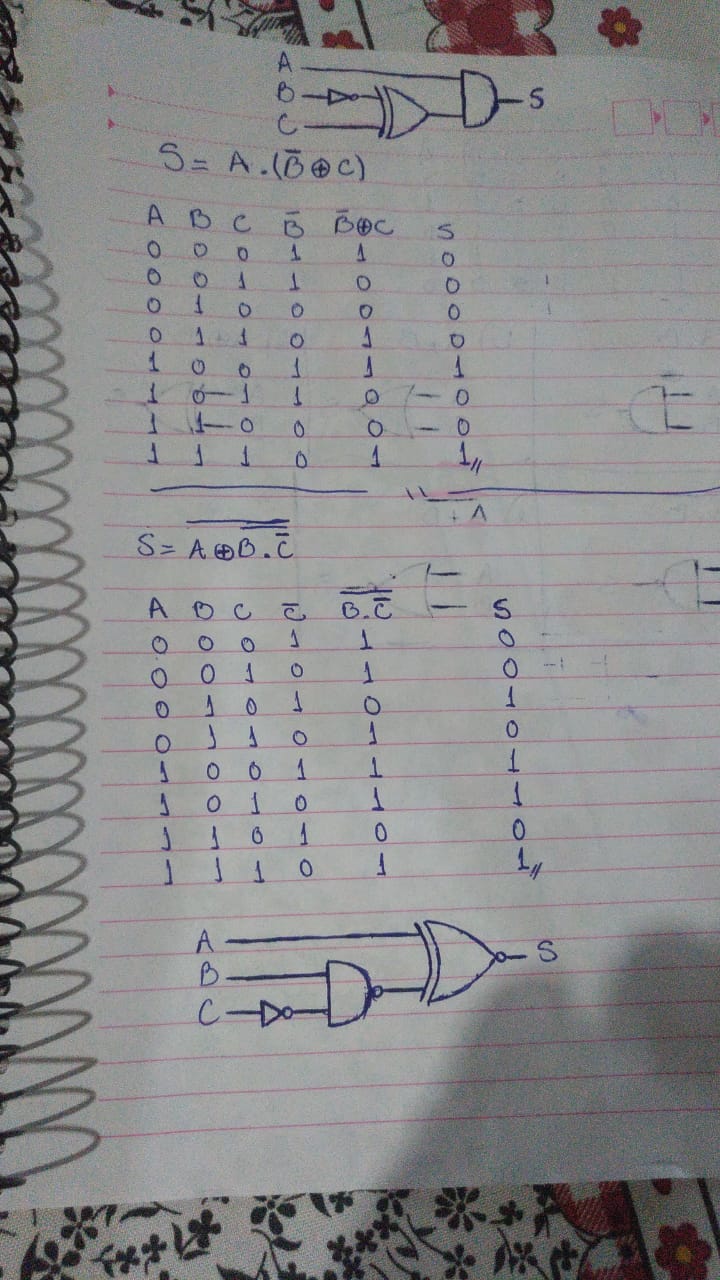 A
B
S
C
S = A.(B̅⊕C)
A B C B̅ B̅⊕C S
0 0 0 1 1 0
0 0 1 1 0 0
0 1 0 0 0 0
0 1 1 0 1 0
1 0 0 1 1 1
1 0 1 1 0 0
1 1 0 0 0 0
1 1 1 0 1 1
S = A̅ ̅⊕̅ ̅B̅.̅C̅̅
A B C C̅ B̅.̅C̅̅ S
0 0 0 1 1 0
0 0 1 0 1 0
0 1 0 1 0 1
0 1 1 0 1 0
1 0 0 1 1 1
1 0 1 0 1 1
1 1 0 1 0 0
1 1 1 0 1 1
A
B
S
C